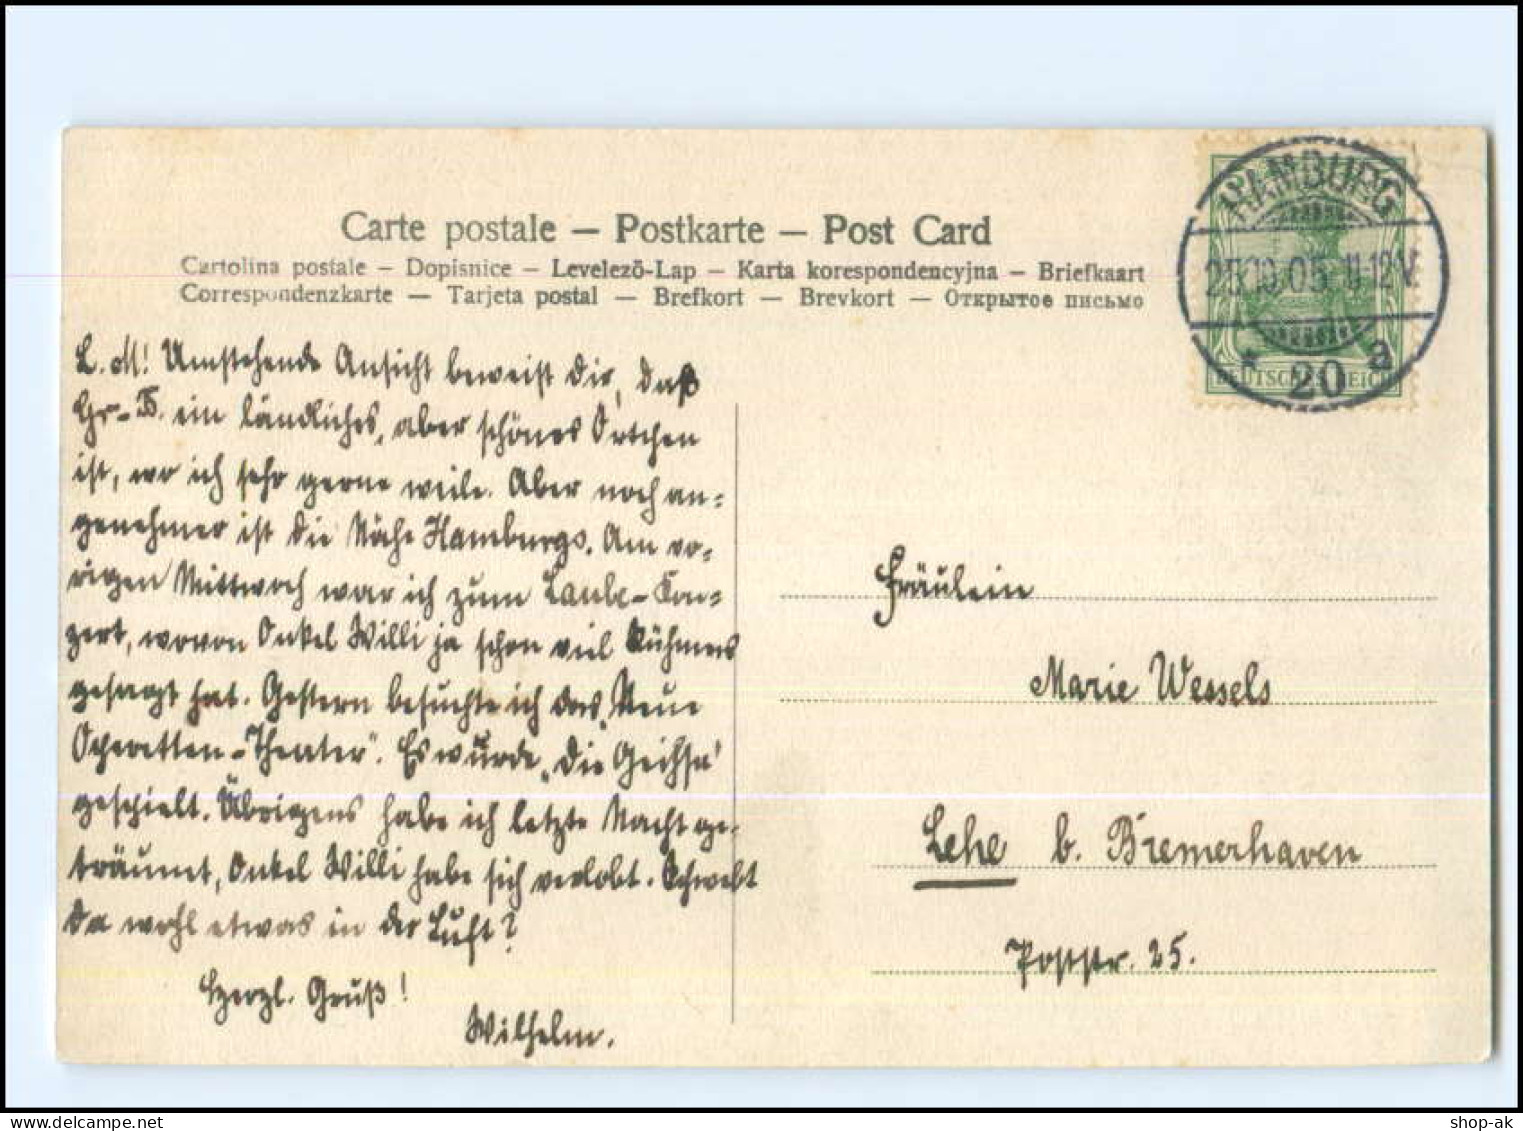 Carte postale – Postkarte – Post Card
Cartolina postale – Dopisnice – Levelező-Lap – Karta korespondencyjna – Briefkaart
Correspondenzkarte – Tarjeta postal – Brefkort – Brevkort – Открытое письмо
HAMBURG
25.10.05. 11-12V.
* 20 a
DEUTSCHES REICH
L. M! Umstehende Ansicht beweist dir, daß
Gr.-B. ein ländliches, aber schönes Örtchen
ist, wo ich sehr gerne weile. Aber noch an-
genehmer ist die Nähe Hamburgs. Am vo-
rigen Mittwoch war ich zum Laube-Kon-
zert, wovon Onkel Willi ja schon viel Rühmens
gesagt hat. Gestern besuchte ich das „Neue
Operetten-Theater". Es wurde „Die Geisha"
gespielt. Übrigens habe ich letzte Nacht ge-
träumt, Onkel Willi habe sich verlobt. Schwebt
da wohl etwas in der Luft?
Herzl. Gruß!
Wilhelm.
Fräulein
Marie Wessels
Lehe b. Bremerhaven
Poststr. 25.
shop-ak.com
shop-ak